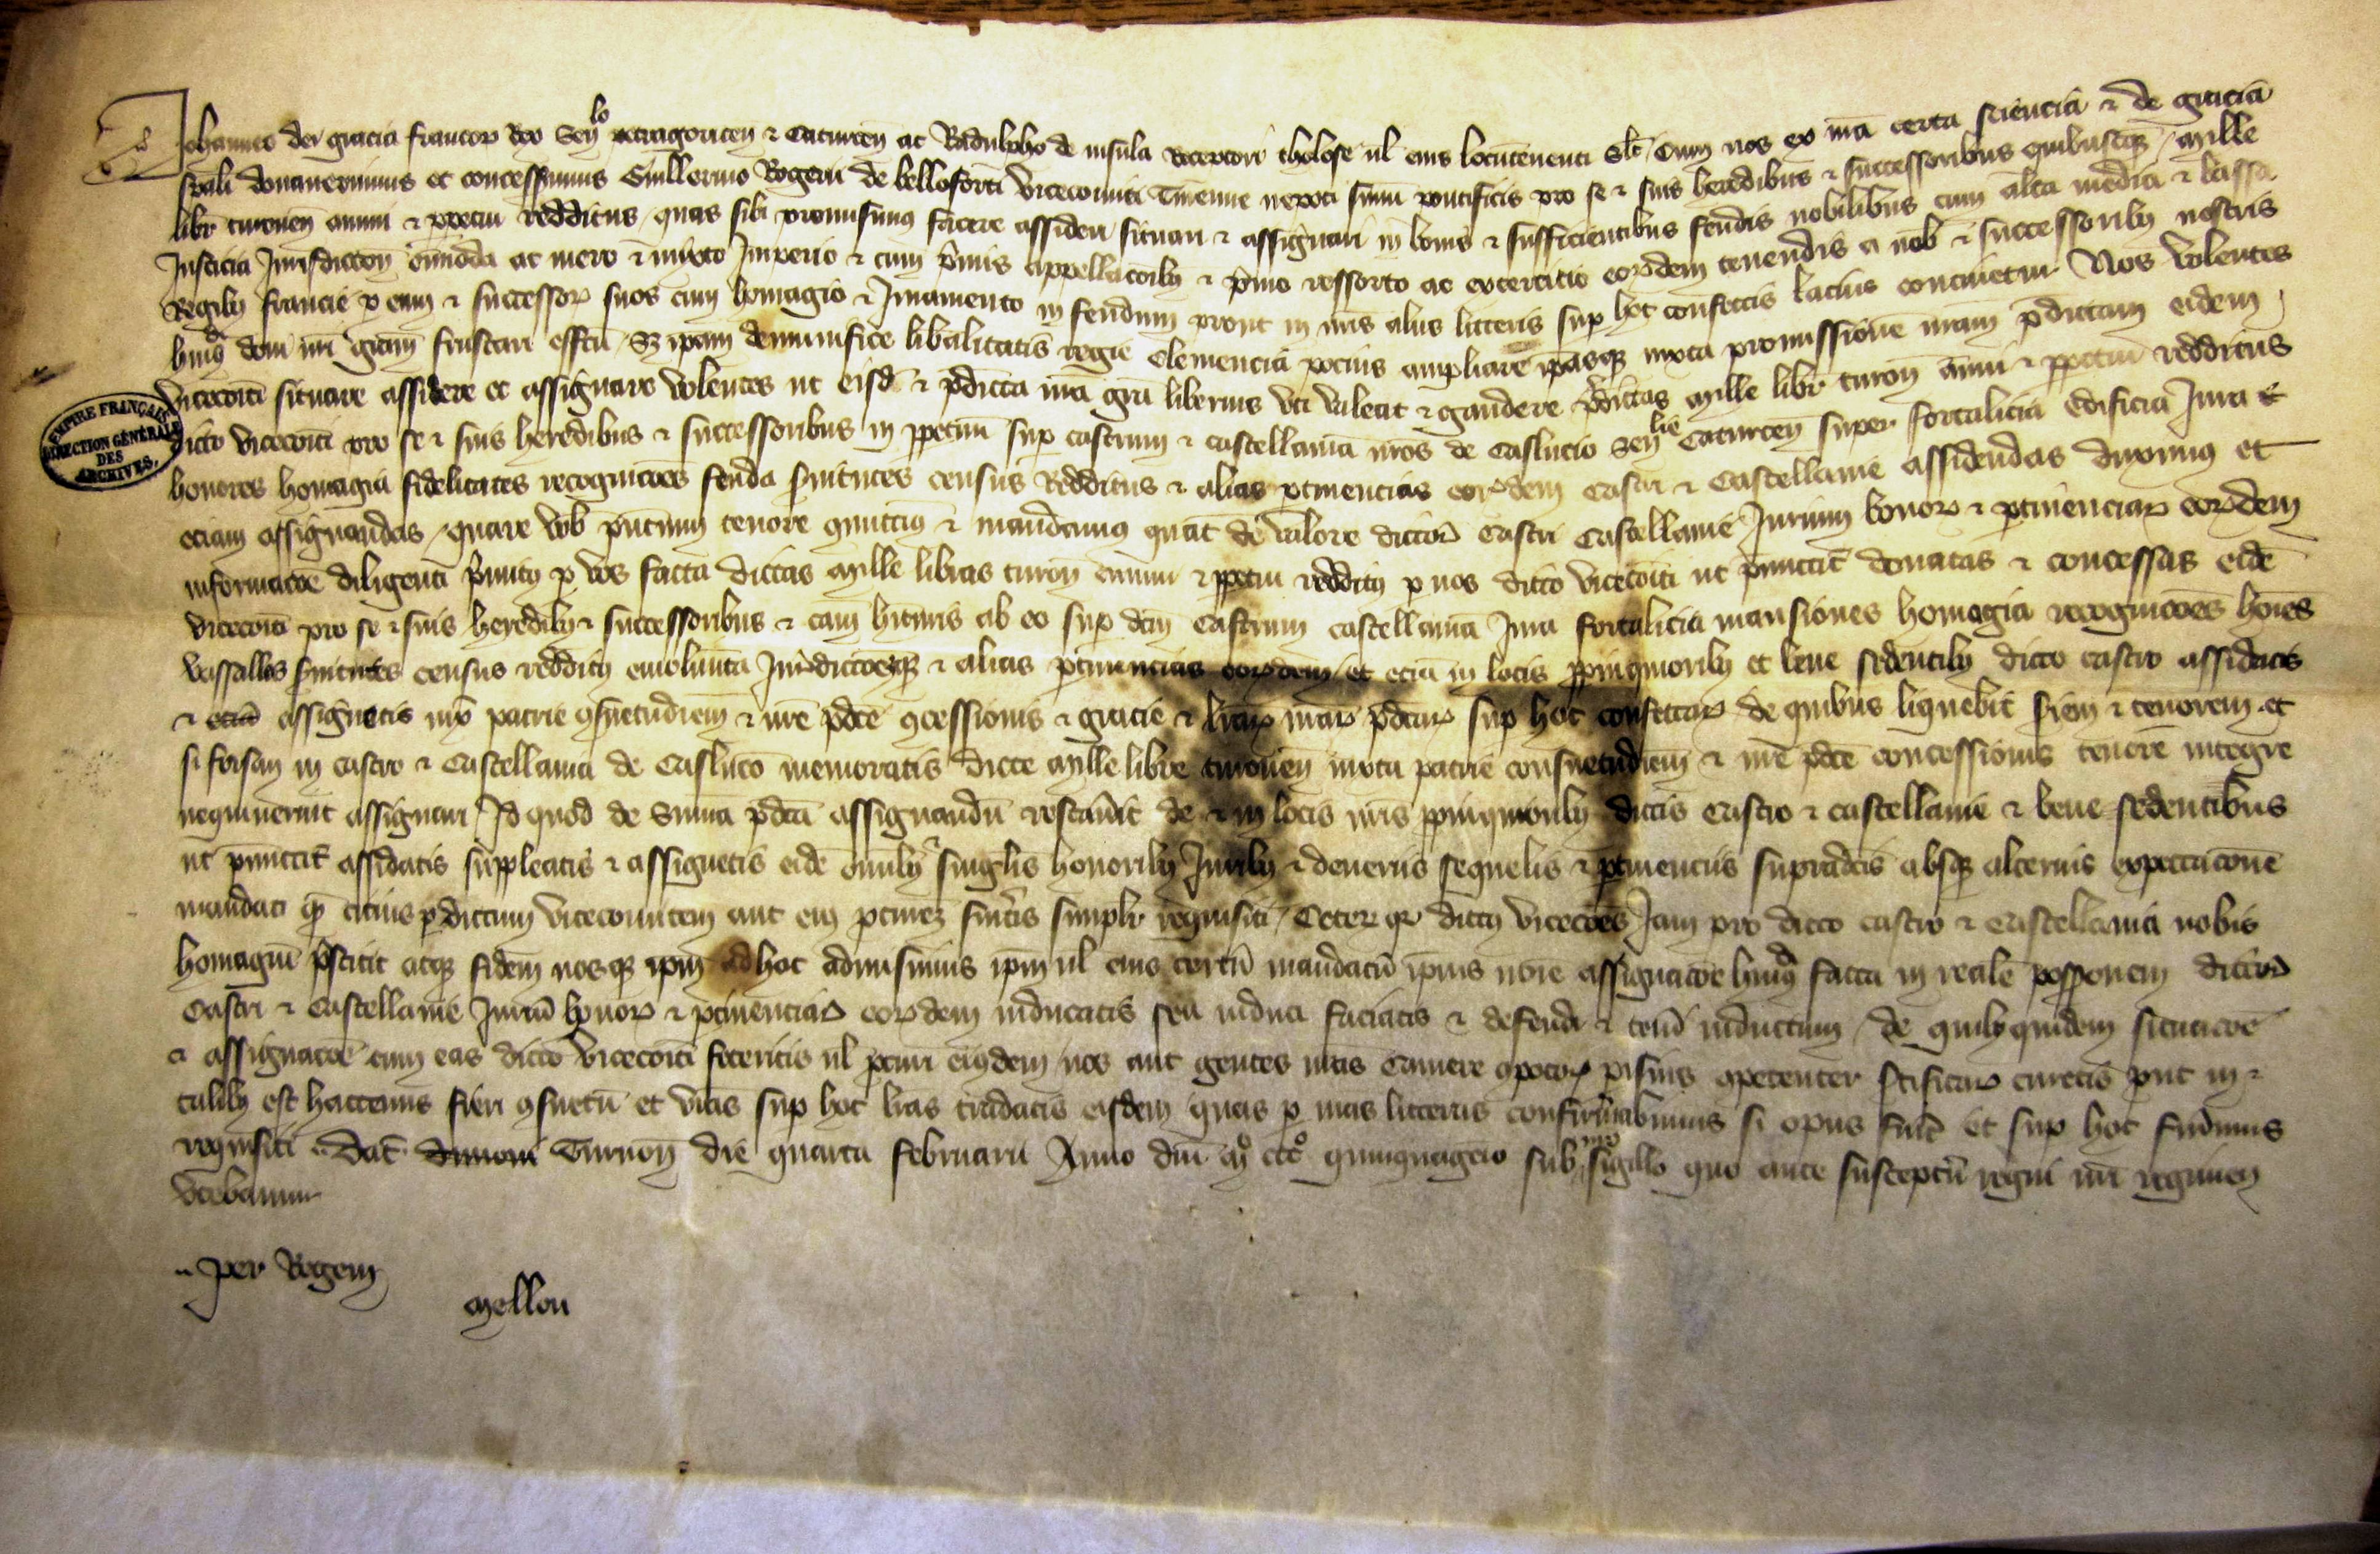 Johannes dei gracia francor Rex Senlo petragoricen & Caturcen ac Radulpho de insula Receptori tholose vl eius locumtenenti Slt Cum nos ex nra certa sciencia & de gracia
spali donauerimus et concesserimus Guillermo Rogerii de belloforti vicecomiti Turenne nepoti summi pontificis pro se & suis heredibus & successoribus quibuscumque mille
libr turonen annui & ppetui redditus quas sibi promisimus facere assideri situari & assignari in bonis & sufficientibus feudis nobilibus cum alta media & bassa
Justicia Jurisdiccon omoda ac mero & mixto Imperio & cum primis appellacoib & primo ressorto ac exercicio eordem tenendis a nob & successorib nostris
Regib francie p eum & successor suos cum homagio & Juramento in feudum prout in nris aliis litteris sup hoc confectis lacius continetur Nos volentes
huiusd doni nri gram frustrari effcu Sz ipam de munifice libalitatis regie clemencia pocius ampliare ipasque iuxta promissione nram pdictam eidem
vicecoiti situare assidere et assignare volentes ut eisd & pdicta nra gra liberius uti valeat & gaudere pdictas mille libr turon annui & ppetui redditus
dicto vicecoiti pro se & suis heredibus & successoribus in ppetuu sup castrum & castellania nros de Caslucio Senlie Caturcen super fortalicia edificia Jura &
honores homagia fidelitates recognicoes feuda seruitutes census Redditus & alias ptinencias eordem castri & Castellanie assidendas duximus et
eciam assignandas quare vob pntium tenore committimus & mandamus quat de valore dictor Castri Castellanie Jurium honor & ptinenciar eordem
informacoe diligenti primitus p vos facta dictas mille libras turon annui & ppetui redditus p nos dicto vicecoiti ut pmittit donatas & concessas eide
vicecoiti pro se & suis heredib & successoribus & cam hituris ab eo sup dcm Castrum castellania Jura fortalicia mansiones homagia recognicoes hoies
vassallos seruitutes census redditus emolimta Jurdiccoesque & alias ptinencias eordem et ecia in locis ppinquiorib et bene sedentib dicto castro assideatis
& ecia assignetis iux patrie consuetudiem & nre pdce concessionis & gracie & lrar nrar pdcar sup hoc confectar de quibus liquebit seriem & tenorem et
si forsan in castro & Castellania de Caslucio memoratis dicte mille libre turonen iuxta patrie consuetudiem & nre pdce concessionis tenore integre
nequiuerint assignari Id quod de Suma pdca assignandu restabit de & in locis nris ppinquiorib dictis Castro & castellanie & bene sedentibus
ut pmittit assideatis suppleatis & assignetis eide omib & singlis honorib Jurib & deueriis sequelis & ptinenciis supradcis absque alterius expectacione
mandati quam cicius p dictum vicecomitem aut eius fueritis simplr requisiti Ceter quia dictus vicecoes Jam pro dicto castro & Castellania nobis
homagiu pstitit atque fidem nosque ipm ad hoc admisimus ipm vl eius certu mandatu ipius noie assignacoe huiusd facta in reale possessionem dictor
Castri & Castellanie Juriu honor & ptinenciar eordem inducatis seu induci faciatis & defendi & teneri inductum de quibus quidem situacoe
& assignacoe cum eas dicto vicecoiti feceritis vl pcuri eiusdem nos aut gentes nras Camere compotor parisius competenter certificare curetis put in
talib est hactenus fieri consuetu et vras sup hoc lras tradatis eisdem quas p nras litteras confirmabimus si opus fuerit et sup hoc fuerimus
requisiti Dat diuioni Turnon die quarta februarii Anno dni mo ccco quinquagesio sub nro sigillo quo ante susceptu regni nri regimen
utebamur
Per Regem
Mellou
EMPIRE FRANÇAIS
DIRECTION GÉNÉRALE
DES
ARCHIVES.